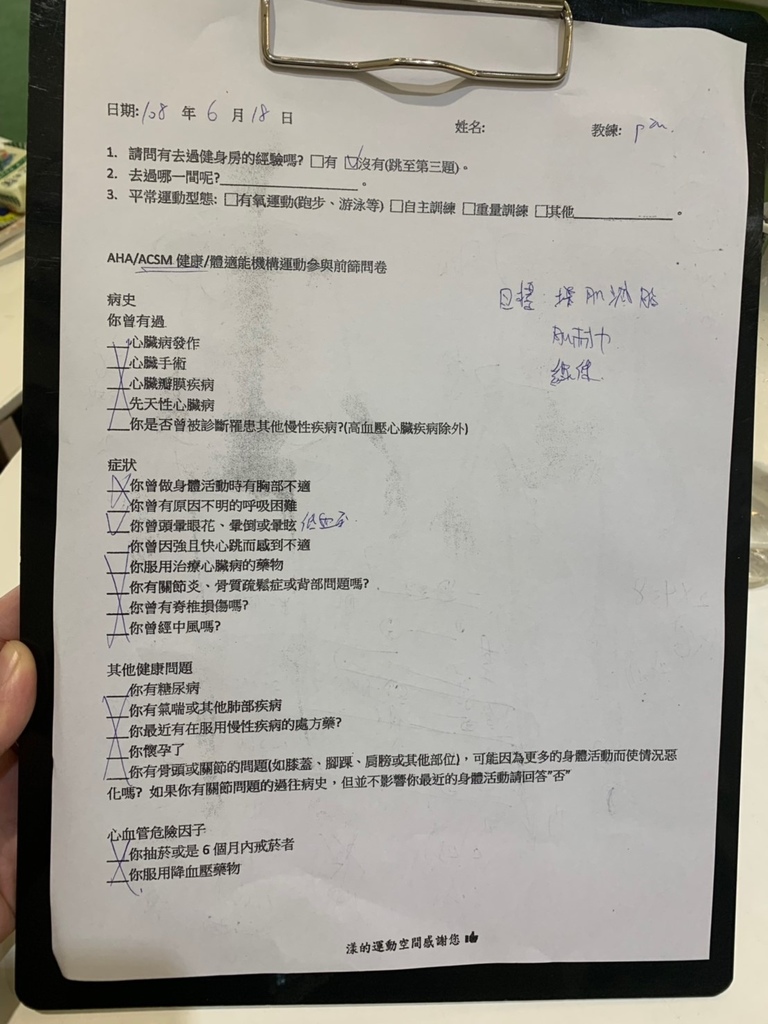 日期: 108 年 6 月 18 日 姓名: 教練: pan.
1. 請問有去過健身房的經驗嗎? □有 ☑沒有(跳至第三題)。
2. 去過哪一間呢?_______________。
3. 平常運動型態: □有氧運動(跑步、游泳等) □自主訓練 □重量訓練 □其他___________。
AHA/ACSM 健康/體適能機構運動參與前篩問卷
目標: 增肌減脂
肌耐力
線條
病史
你曾有過
__心臟病發作
__心臟手術
__心臟瓣膜疾病
__先天性心臟病
__你是否曾被診斷罹患其他慢性疾病?(高血壓心臟疾病除外)
症狀
__你曾做身體活動時有胸部不適
__你曾有原因不明的呼吸困難
✓你曾頭暈眼花、暈倒或暈眩 低血壓
__你曾因強且快心跳而感到不適
__你服用治療心臟病的藥物
__你有關節炎、骨質疏鬆症或背部問題嗎?
__你曾有脊椎損傷嗎?
__你曾經中風嗎?
其他健康問題
__你有糖尿病
__你有氣喘或其他肺部疾病
__你最近有在服用慢性疾病的處方藥?
__你懷孕了
__你有骨頭或關節的問題(如膝蓋、腳踝、肩膀或其他部位)，可能因為更多的身體活動而使情況惡
化嗎? 如果你有關節問題的過往病史，但並不影響你最近的身體活動請回答"否"
心血管危險因子
__你抽菸或是 6 個月內戒菸者
__你服用降血壓藥物
漾的運動空間感謝您